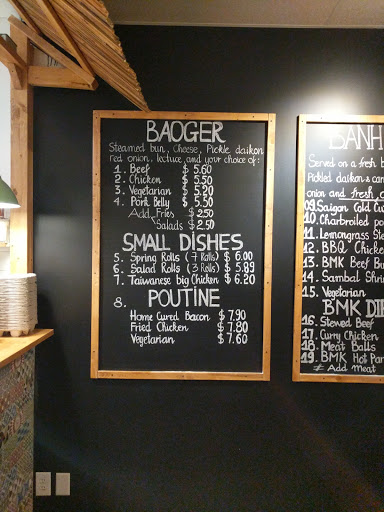 BAOGER
Steamed bun, Cheese, Pickle daikon
red onion, lectuce, and your choice of:
1. Beef $ 5.60
2. Chicken $ 5.50
3. Vegetarian $ 5.20
4. Pork Belly $ 5.50
Add Fries $ 2.50
Salads $ 2.50
SMALL DISHES
5. Spring Rolls (7 Rolls) $ 6.00
6. Salad Rolls (3 Rolls) $ 5.89
7. Taiwanese big Chicken $ 6.20
POUTINE
8.
Home Cured Bacon $ 7.90
Fried Chicken $ 7.80
Vegetarian $ 7.60
BANH
Served on a fresh b
Pickled daikon & car
onion and fresh c
09. Saigon Cold Cu
10. Charbroiled po
11. Lemongrass Ste
12. BBQ Chicken
13. BMK Beef Bu
14. Sambal Shri
15. Vegetarian
BMK DI
16. Stewed Beef
17. Curry Chicken
18. Meat Balls
19. BMK Hot Par
≠ Add Meat